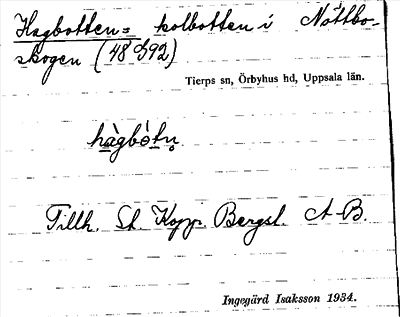 Hagbotten = kolbotten i Nöttbo-
skogen (48 G92)
Tierps sn, Örbyhus hd, Uppsala län.
hàgbòtṇ
Tillh. St. Kopp. Bergsl. A-B.
Ingegärd Isaksson 1934.